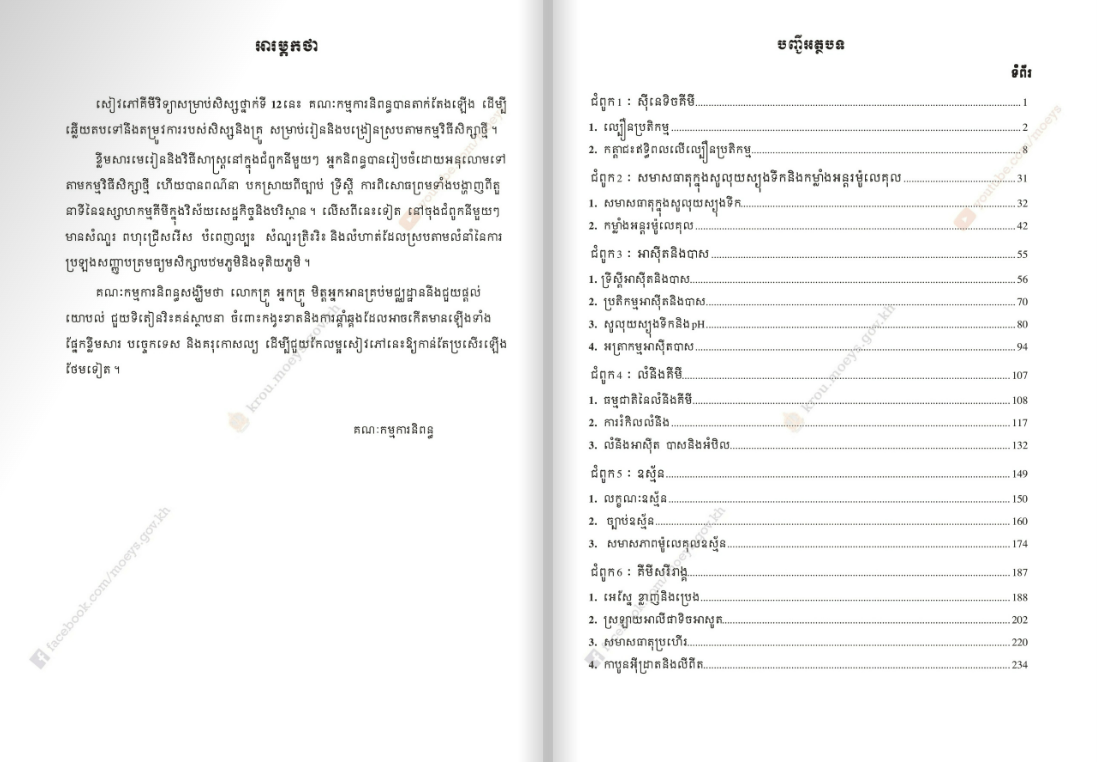 អារម្ភកថា
សៀវភៅគីមីវិទ្យាសម្រាប់សិស្សថ្នាក់ទី 12នេះ គណៈកម្មការនិពន្ធបានតាក់តែងឡើង ដើម្បី
ឆ្លើយតបទៅនឹងតម្រូវការរបស់សិស្សនិងគ្រូ សម្រាប់រៀននិងបង្រៀនស្របតាមកម្មវិធីសិក្សាថ្មី ។
ខ្លឹមសារមេរៀននិងវិធីសាស្ត្រនៅក្នុងជំពូកនីមួយៗ អ្នកនិពន្ធបានរៀបចំដោយអនុលោមទៅ
តាមកម្មវិធីសិក្សាថ្មី ហើយបានពណ៌នា បកស្រាយពីច្បាប់ ទ្រឹស្តី ការពិសោធព្រមទាំងបង្ហាញពីតួ
នាទីនៃឧស្សាហកម្មគីមីក្នុងវិស័យសេដ្ឋកិច្ចនិងបរិស្ថាន ។ លើសពីនេះទៀត នៅចុងជំពូកនីមួយៗ
មានសំណួរ ពហុជ្រើសរើស បំពេញល្បះ សំណួរត្រិះរិះ និងលំហាត់ដែលស្របតាមលំនាំនៃការ
ប្រឡងសញ្ញាបត្រមធ្យមសិក្សាបឋមភូមិនិងទុតិយភូមិ ។
គណៈកម្មការនិពន្ធសង្ឃឹមថា លោកគ្រូ អ្នកគ្រូ មិត្តអ្នកអានគ្រប់មជ្ឈដ្ឋាននឹងជួយផ្តល់
យោបល់ ជួយទិតៀនរិះគន់ស្ថាបនា ចំពោះកង្វះខាតនិងការឆ្គាំឆ្គងដែលអាចកើតមានឡើងទាំង
ផ្នែកខ្លឹមសារ បច្ចេកទេស និងគរុកោសល្យ ដើម្បីជួយកែលម្អសៀវភៅនេះឱ្យកាន់តែប្រសើរឡើង
ថែមទៀត ។
គណៈកម្មការនិពន្ធ
krou.moeys.gov.kh
facebook.com/moeys.gov.kh
បញ្ជីអត្ថបទ
ទំព័រ
ជំពូក1 : ស៊ីនេទិចគីមី 1
1. ល្បឿនប្រតិកម្ម 2
2. កត្តាជះឥទ្ធិពលលើល្បឿនប្រតិកម្ម 8
ជំពូក2 : សមាសធាតុក្នុងសូលុយស្យុងទឹកនិងកម្លាំងអន្តរម៉ូលេគុល 31
1. សមាសធាតុក្នុងសូលុយស្យុងទឹក 32
2. កម្លាំងអន្តរម៉ូលេគុល 42
ជំពូក3 : អាស៊ីតនិងបាស 55
1. ទ្រឹស្តីអាស៊ីតនិងបាស 56
2. ប្រតិកម្មអាស៊ីតនិងបាស 70
3. សូលុយស្យុងទឹកនិងpH 80
4. អត្រាកម្មអាស៊ីតបាស 94
ជំពូក4 : លំនឹងគីមី 107
1. ធម្មជាតិនៃលំនឹងគីមី 108
2. ការរំកិលលំនឹង 117
3. លំនឹងអាស៊ីត បាសនិងអំបិល 132
ជំពូក5 : ឧស្ម័ន 149
1. លក្ខណៈឧស្ម័ន 150
2. ច្បាប់ឧស្ម័ន 160
3. សមាសភាពម៉ូលេគុលឧស្ម័ន 174
ជំពូក6 : គីមីសរីរាង្គ 187
1. អេស្ទែ ខ្លាញ់និងប្រេង 188
2. ស្រឡាយអាលីផាទិចអាសូត 202
3. សមាសធាតុប្រហើរ 220
4. កាបូនអ៊ីដ្រាតនិងលីពីត 234
youtube.com/moeys
krou.moeys.gov.kh
facebook.com/moeys.gov.kh